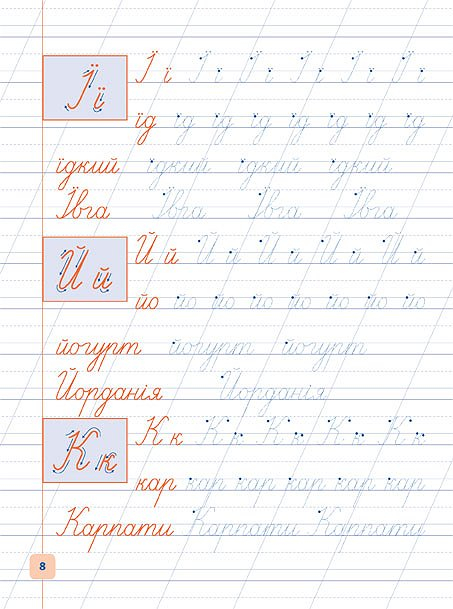 Ї ї
Ї ї Ї ї Ї ї Ї ї Ї ї Ї ї Ї ї
їд їд їд їд їд їд їд їд
їдкий їдкий їдкий їдкий
Ївга Ївга Ївга Ївга
Й й
Й й Й й Й й Й й Й й Й й
йо йо йо йо йо йо йо йо
йогурт йогурт йогурт
Йорданія Йорданія
К к
К к К к К к К к К к
кар кар кар кар кар кар
Карпати Карпати Карпати
8